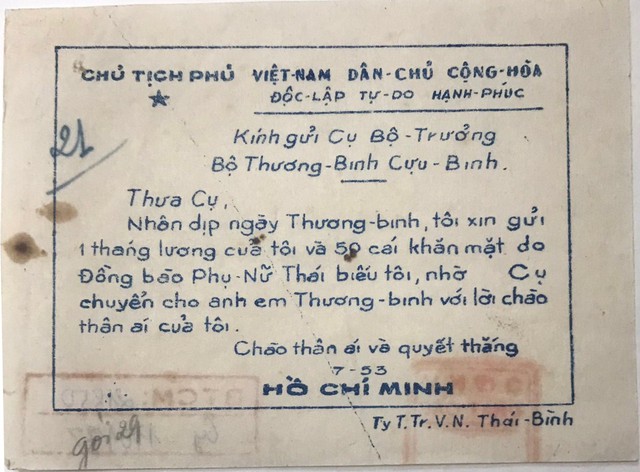 CHỦ TỊCH PHỦ VIỆT-NAM DÂN-CHỦ CỘNG-HÒA
ĐỘC-LẬP TỰ-DO HẠNH-PHÚC
21
Kính gửi Cụ Bộ-Trưởng
Bộ Thương-Binh Cựu-Binh.
Thưa Cụ,
Nhân dịp ngày Thương-binh, tôi xin gửi
1 tháng lương của tôi và 50 cái khăn mặt do
Đồng bào Phụ-Nữ Thái biếu tôi, nhờ Cụ
chuyển cho anh em Thương-binh với lời chào
thân ái của tôi.
Chào thân ái và quyết thắng
7-53
HỒ CHÍ MINH
Ty T.Tr.V.N. Thái-Bình
BTCM:
gọi 29